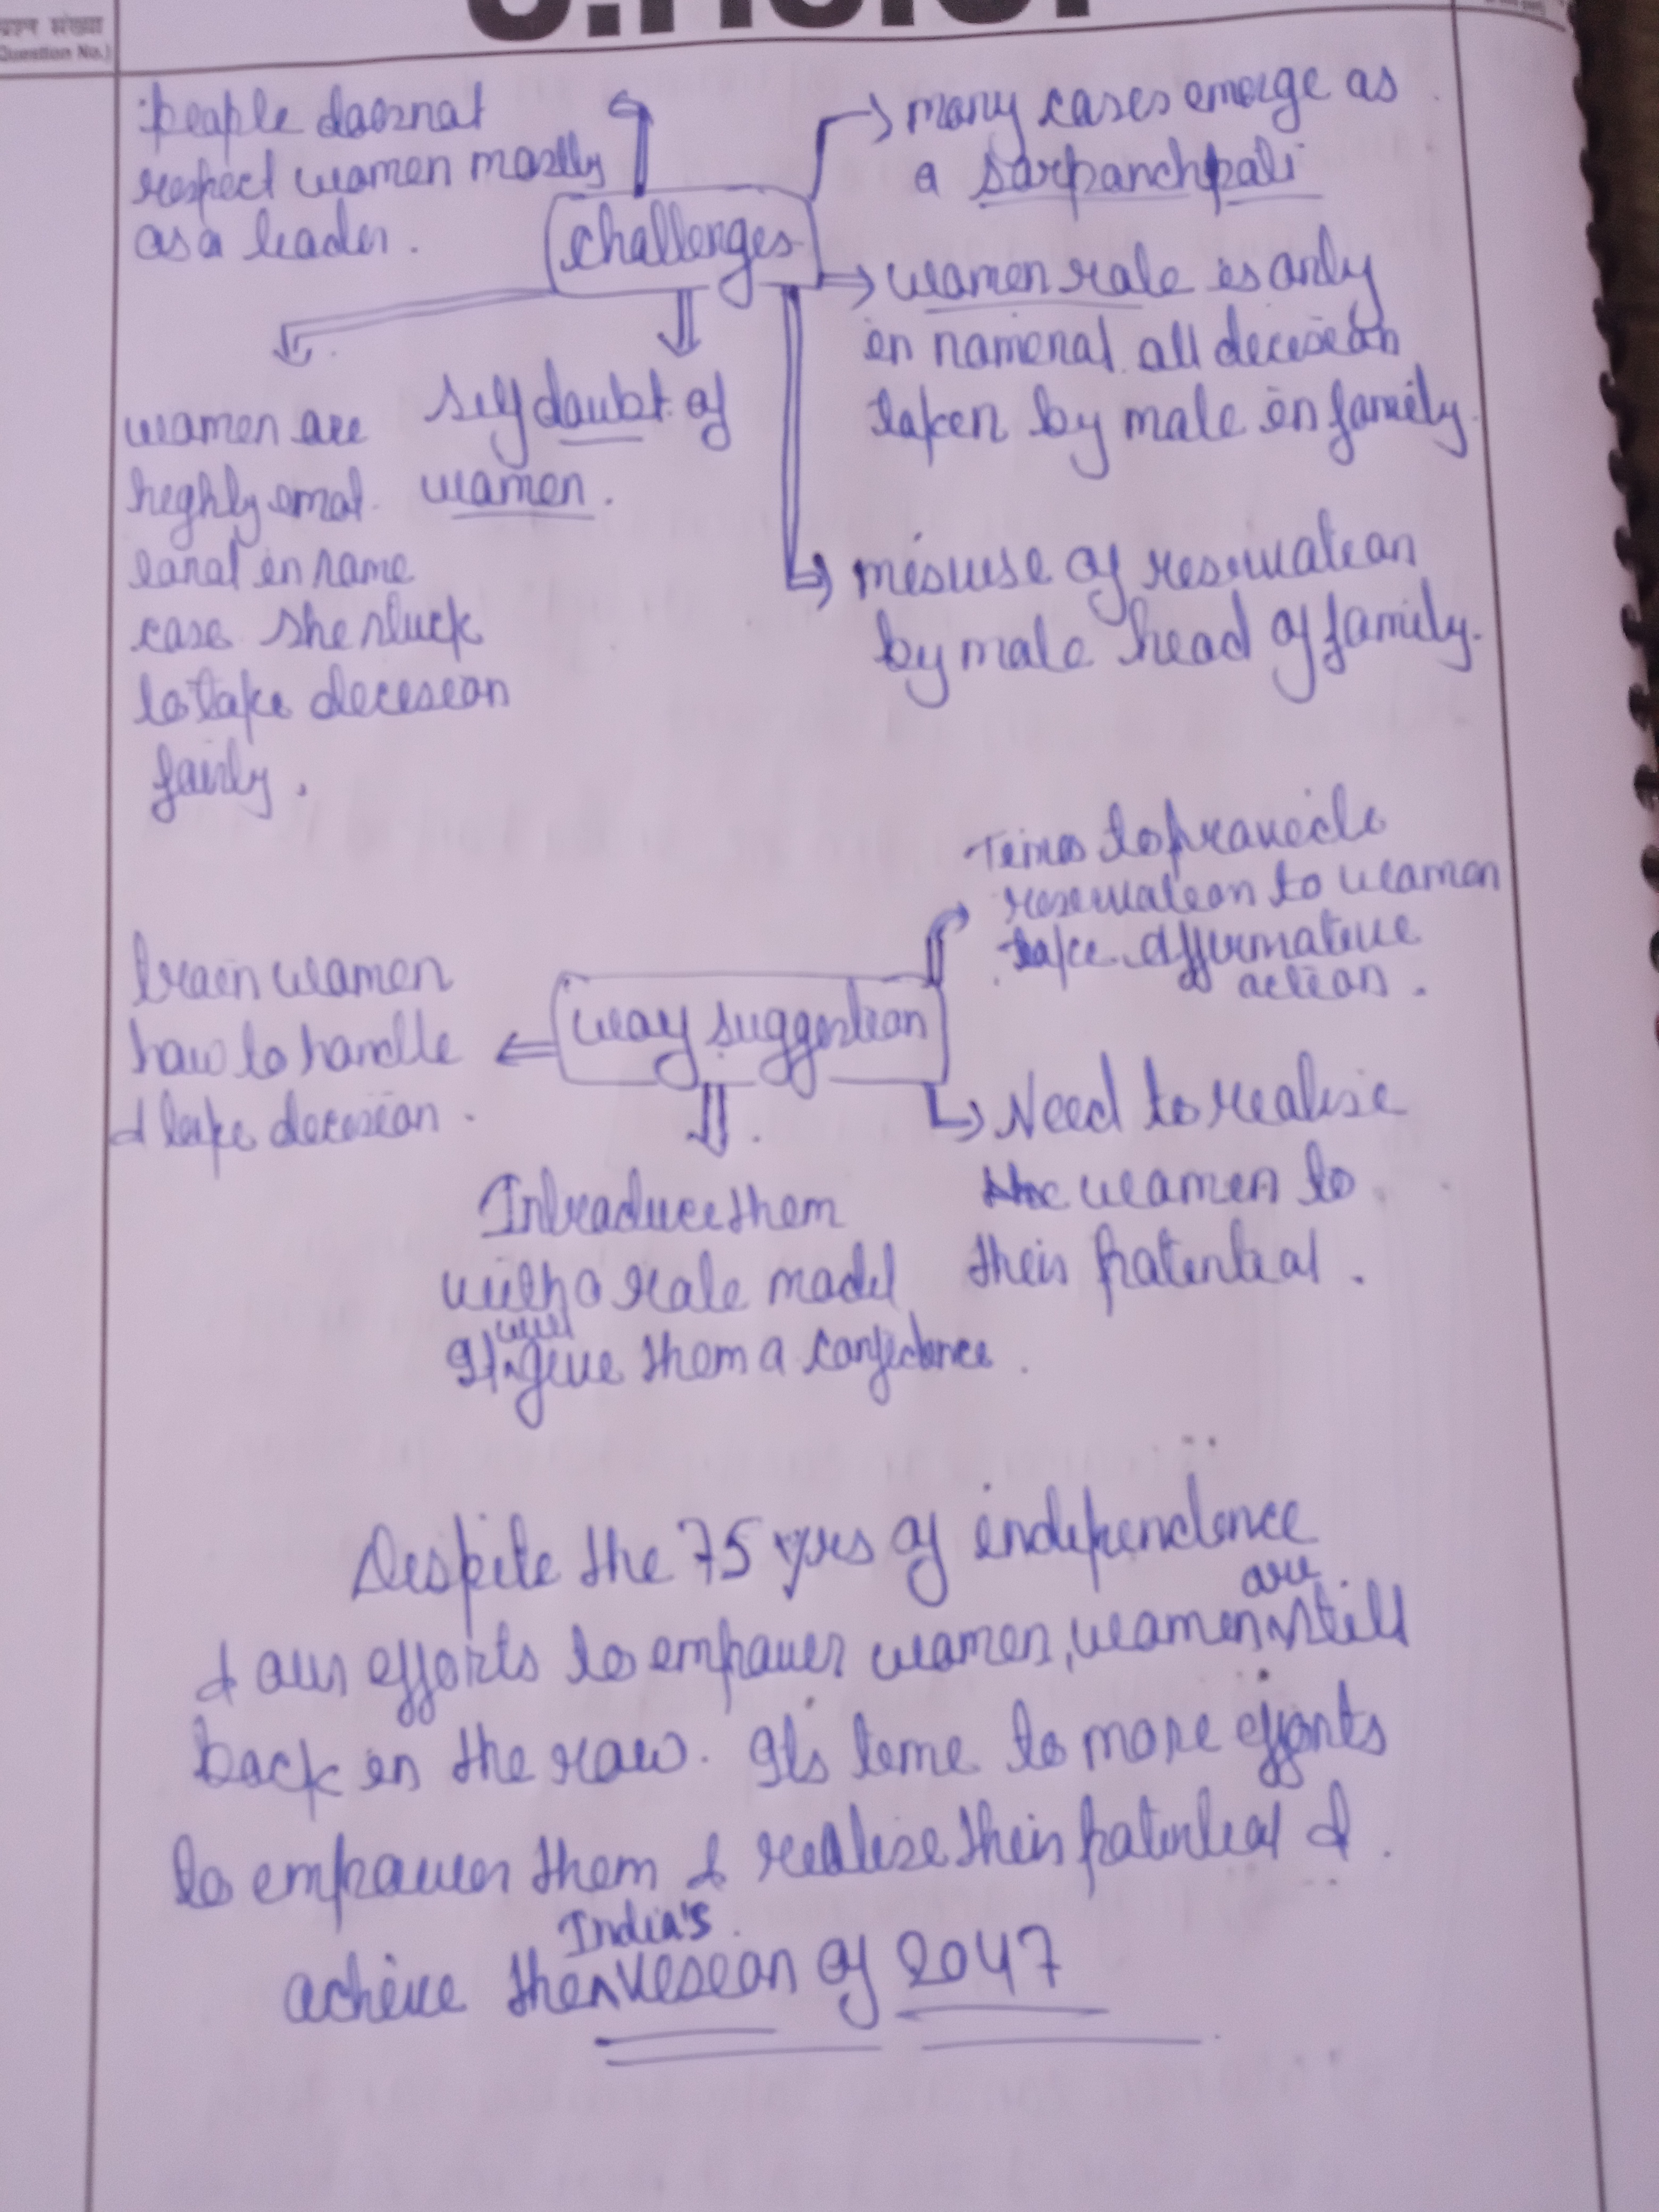 प्रश्न संख्या
(Question No.)
people doesnot
respect women mostly
as a leader.
many cases emerge as
a sarpanchpati
challenges
women role is only
in nomenal all decision
taken by male in family.
women are
highly emot
ional in some
case she stuck
to take decesion
fairly.
self doubt of
women.
misuse of reservation
by male head of family.
Times to provide
reservation to women
take affirmative
action.
train women
how to handle
& take decesion.
way suggestion
Need to realise
the women to
their potential.
Introduce them
with a role model
It will give them a confidence.
Despite the 75 yrs of independence
& our efforts to empower women, women are still
back in the row. Its time to more efforts
to empower them & realize their potential &
acheive the India's vesion of 2047